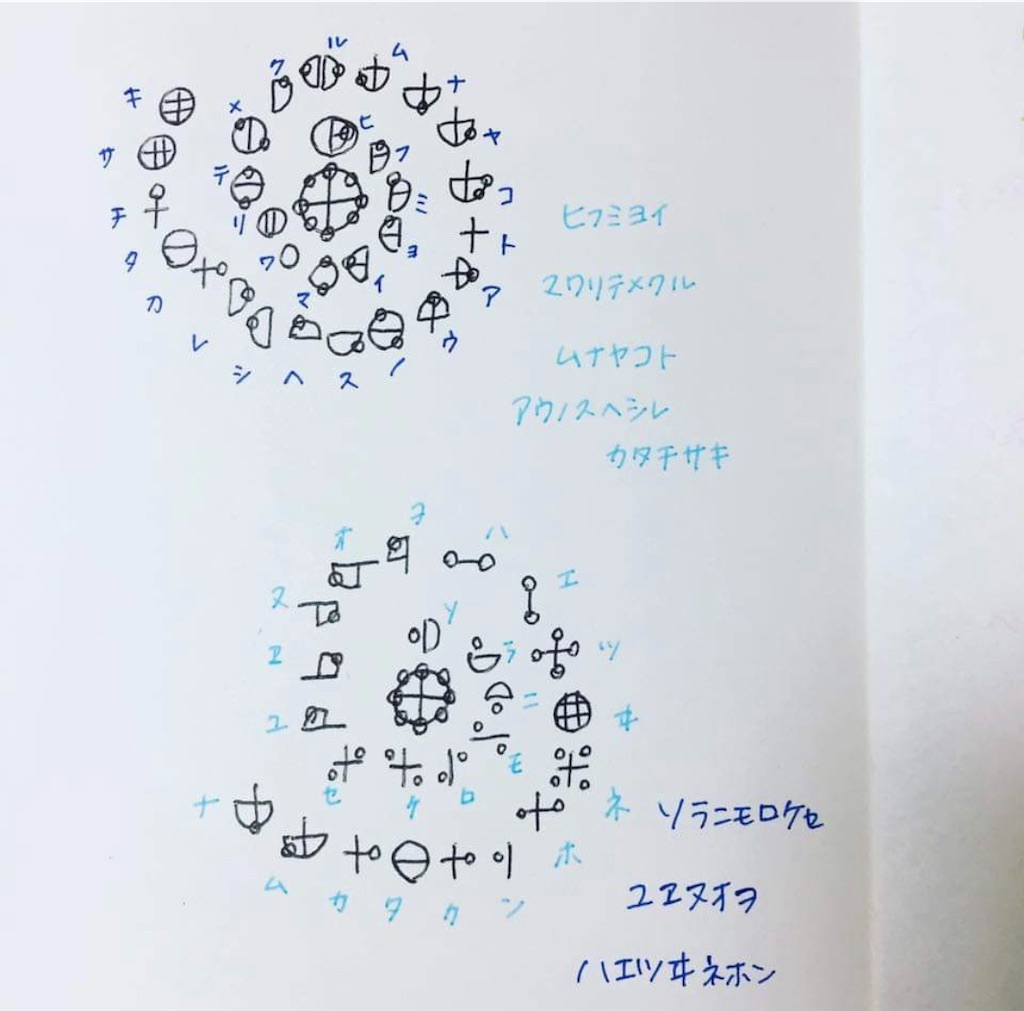 ヒ フ ミ ヨ イ マ ワ リ テ メ ク ル ム ナ ヤ コ ト ア ウ ノ ス ヘ シ レ カ タ チ サ キ
ヒフミヨイ
マワリテメクル
ムナヤコト
アウノスヘシレ
カタチサキ
ソ ラ ニ モ ロ ケ セ ユ ヱ ヌ オ ヲ ハ エ ツ ヰ ネ ホ ン カ タ カ ム ナ
ソラニモロケセ
ユヱヌオヲ
ハエツヰネホン